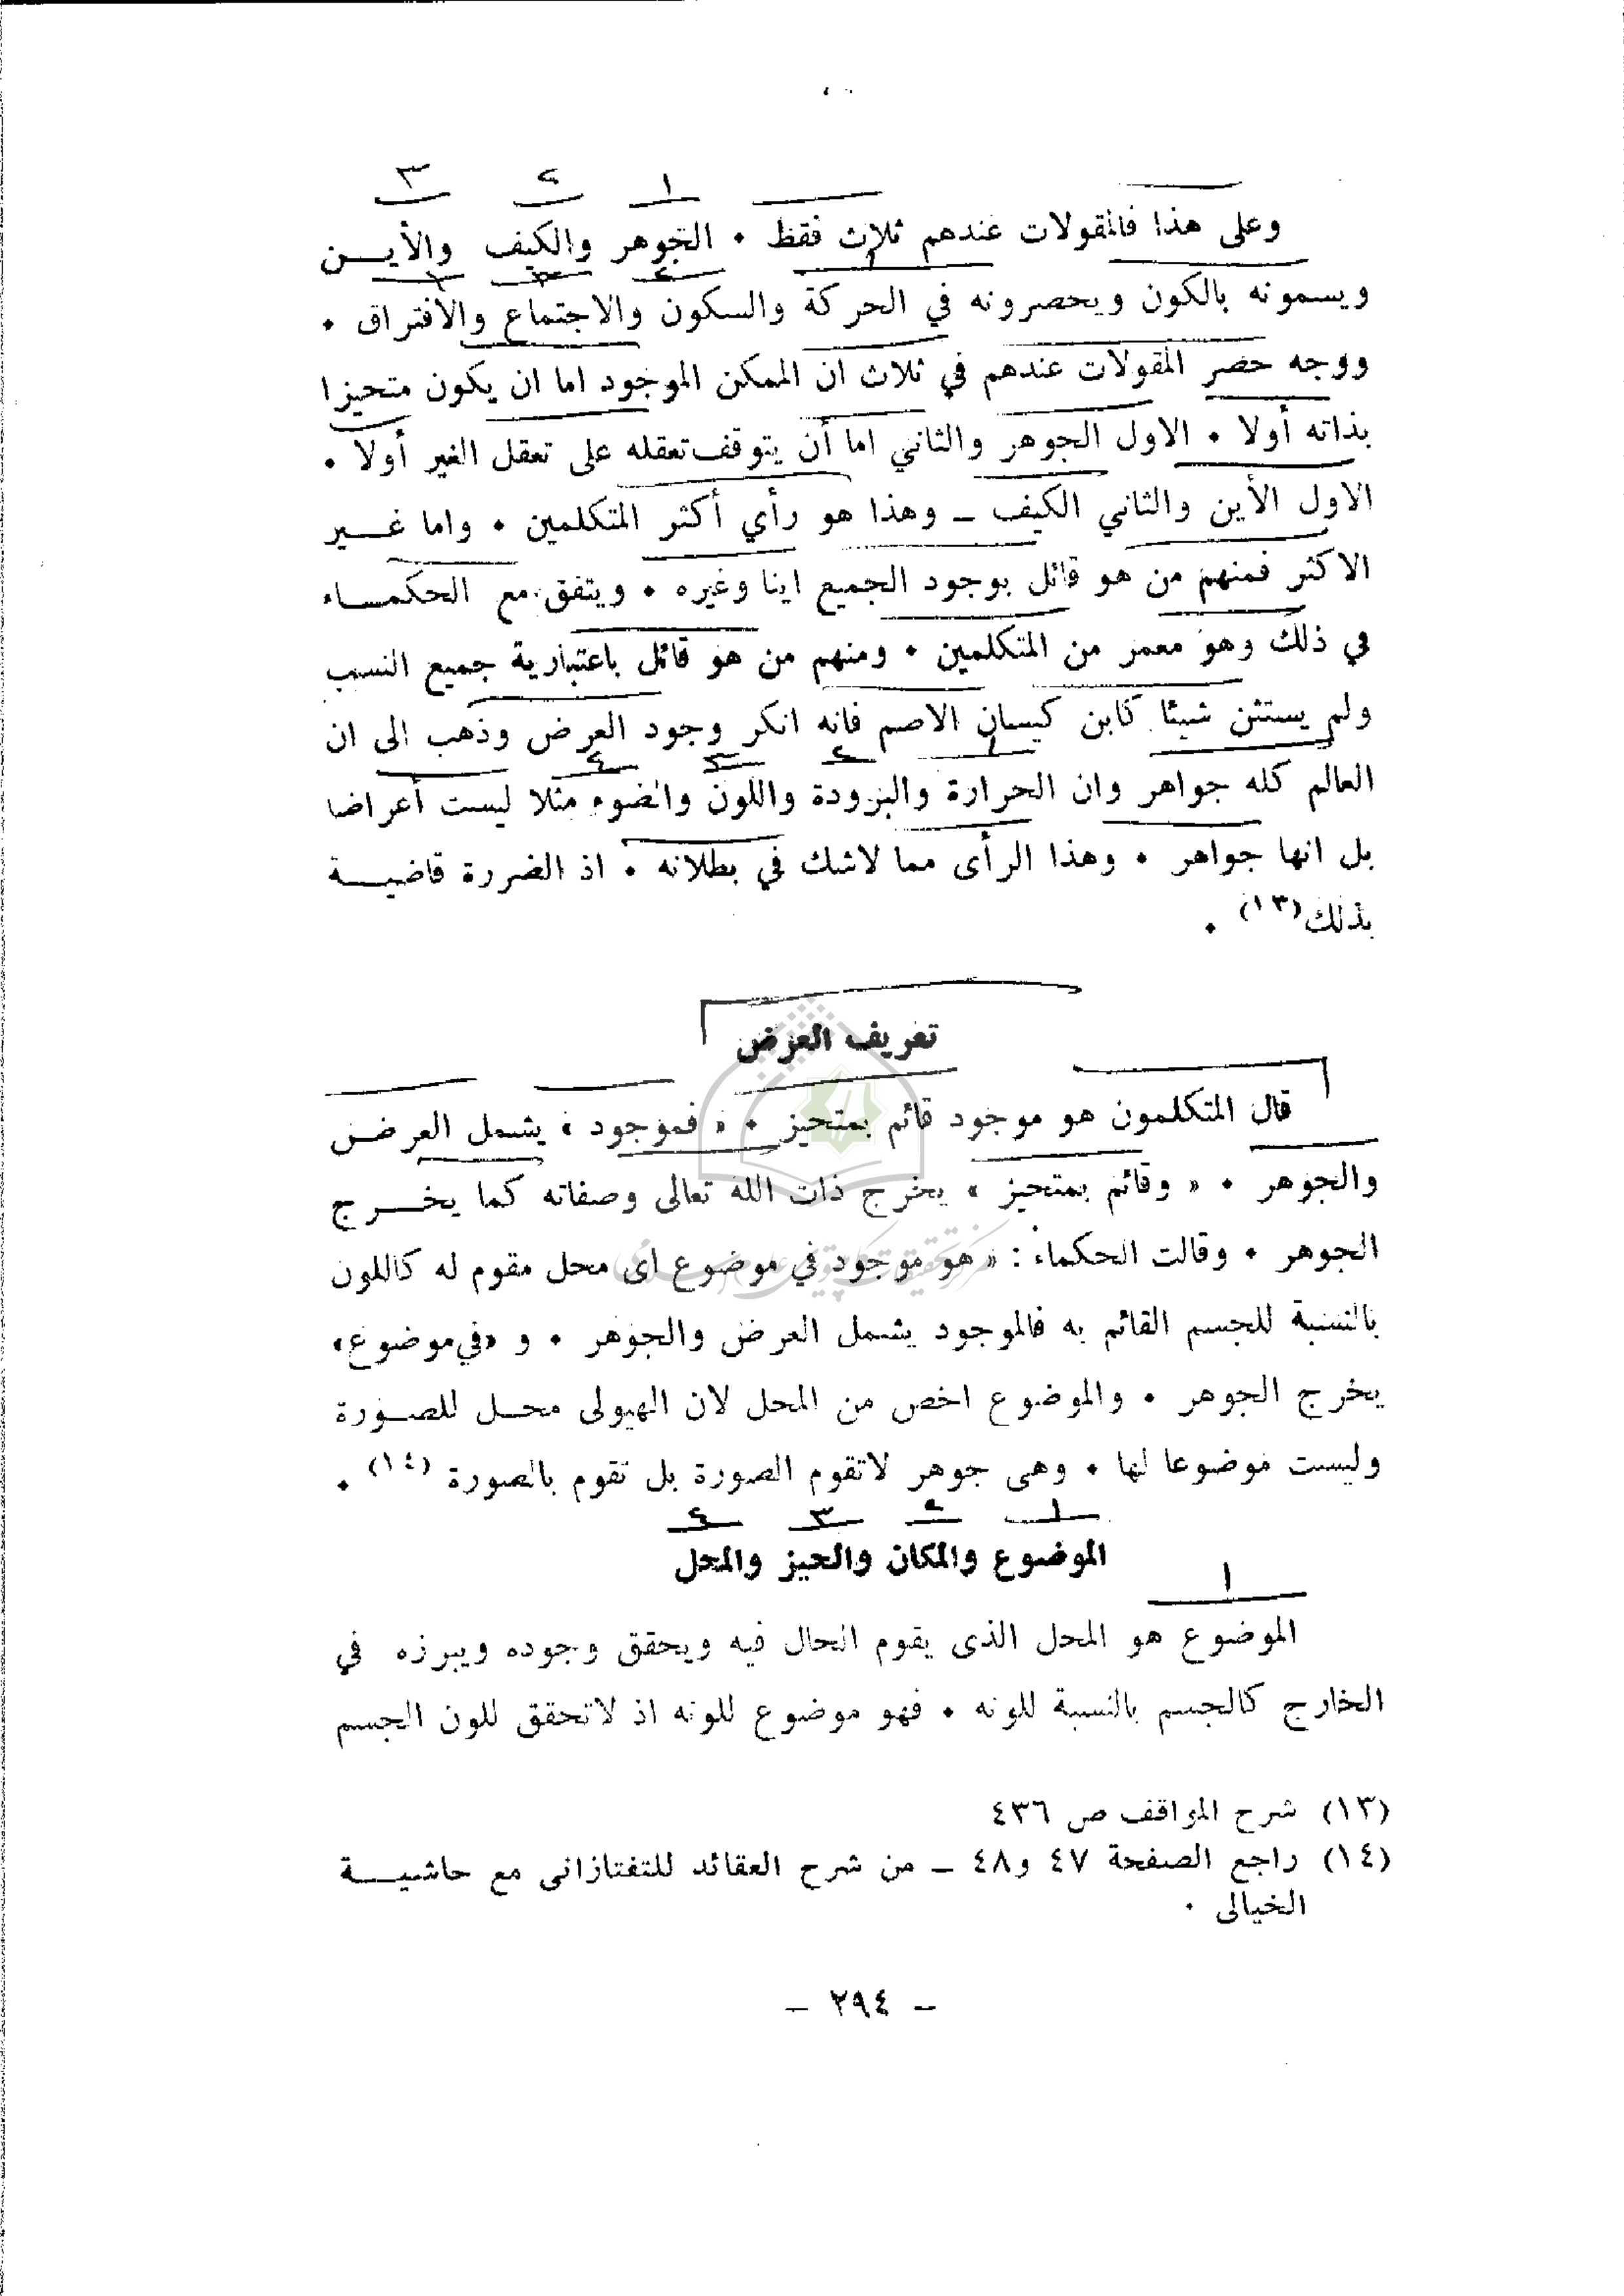 ٣ ٢ ١
وعلى هذا فالمقولات عندهم ثلاث فقط • الجوهر والكيف والأيـــن
ويسمونه بالكون ويحصرونه في الحركة والسكون والاجتماع والافتراق •
ووجه حصر المقولات عندهم في ثلاث ان الممكن الموجود اما ان يكون متحيزا
بذاته أولا • الاول الجوهر والثاني اما أن يتوقف تعقله على تعقل الغير أولا •
الاول الأين والثاني الكيف ــ وهذا هو رأي أكثر المتكلمين • واما غـــير
الاكثر فمنهم من هو قائل بوجود الجميع اينا وغيره • ويتفق مع الحكمـــاء
في ذلك وهو معمر من المتكلمين • ومنهم من هو قائل باعتبارية جميع النسب
ولم يستثن شيئا كابن كيسان الاصم فانه انكر وجود العرض وذهب الى ان
العالم كله جواهر وان الحرارة والبرودة واللون والضوء مثلا ليست أعراضا
بل انها جواهر • وهذا الرأى مما لاشك في بطلانه • اذ الضررة قاضيـــة
بذلك(١٣) •
تعريف العرض
قال المتكلمون هو موجود قائم بمتحيز • « فموجود » يشمل العرض
والجوهر • « وقائم بمتحيز » يخرج ذات الله تعالى وصفاته كما يخـــرج
الجوهر • وقالت الحكماء : « هو موجود في موضوع اى محل مقوم له كاللون
بالنسبة للجسم القائم به فالموجود يشمل العرض والجوهر • و «في موضوع»
يخرج الجوهر • والموضوع اخص من المحل لان الهيولى محـــل للصـــورة
وليست موضوعا لها • وهى جوهر لاتقوم الصورة بل تقوم بالصورة (١٤) •
١ ٢ ٣ ٤
الموضوع والمكان والحيز والمحل
١
الموضوع هو المحل الذى يقوم الحال فيه ويحقق وجوده ويبرزه في
الخارج كالجسم بالنسبة للونه • فهو موضوع للونه اذ لاتحقق للون الجسم
(١٣) شرح المواقف ص ٤٣٦
(١٤) راجع الصفحة ٤٧ و٤٨ ــ من شرح العقائد للتفتازانى مع حاشيـــة
الخيالى •
– ٢٩٤ –